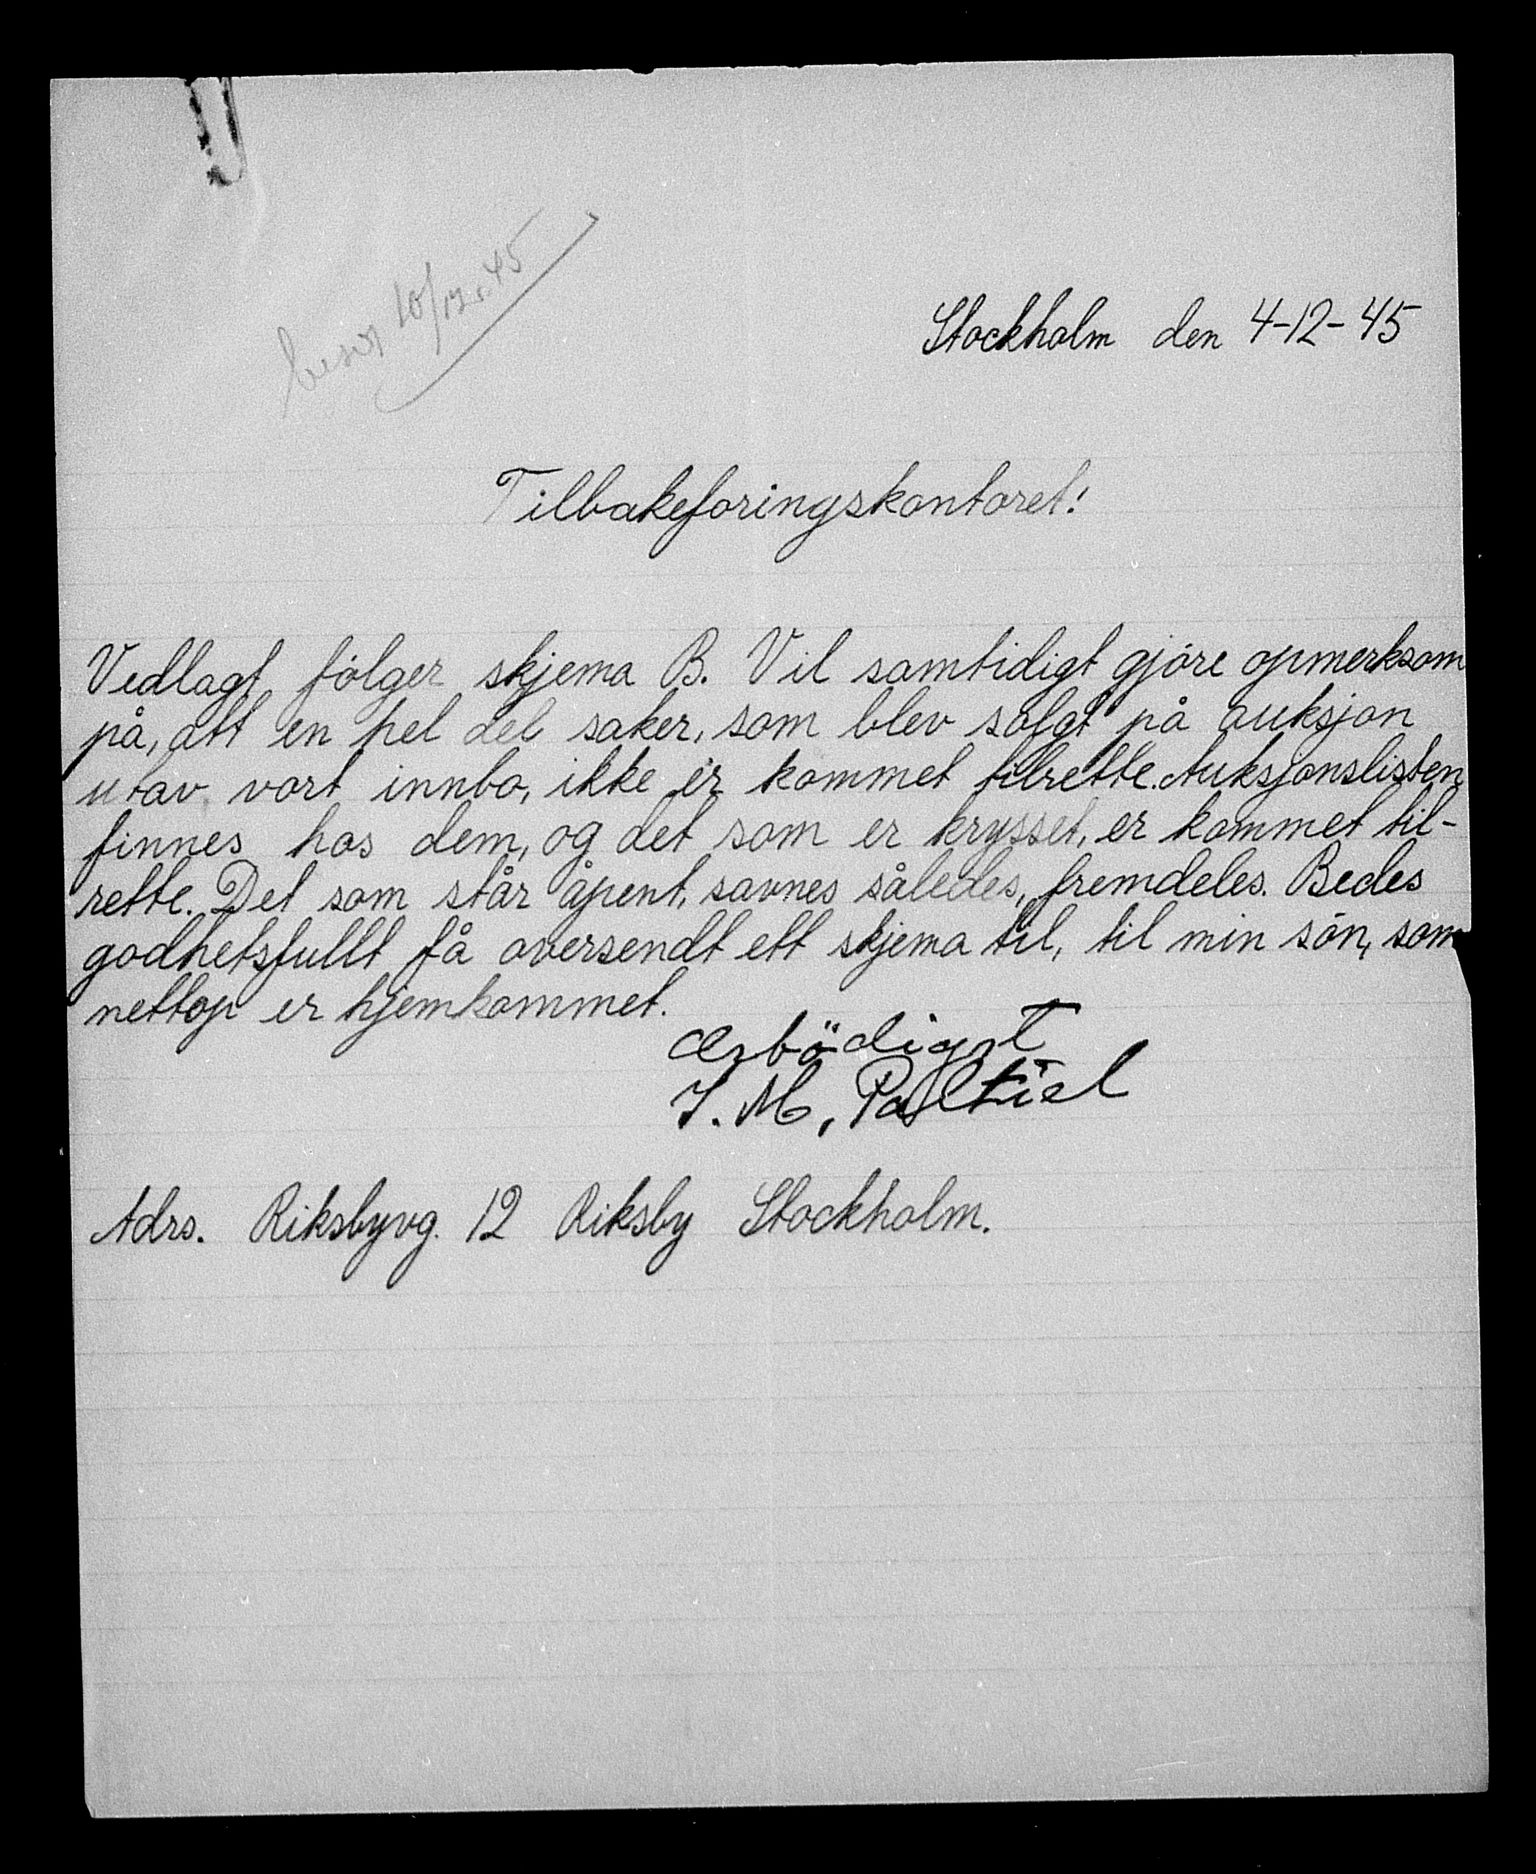 besv 10/12.45
Stockholm den 4-12-45
Tilbakeforingskontoret!
Vedlagt følger skjema B. Vil samtidigt gjöre opmerksom
på, att en hel del saker, som blev solgt på auksjon
utav vort innbo, ikke er kommet tilrette. Auksjonslisten
finnes hos dem, og det som er krysset, er kommet til-
rette. Det som står åpent, savnes således, fremdeles. Bedes
godhetsfullt få oversendt ett skjema til, til min sön, som
nettop er hjemkommet.
Ærbödigst
I. M, Paltiel
Adrs. Riksbyvg. 12 Riksby Stockholm.